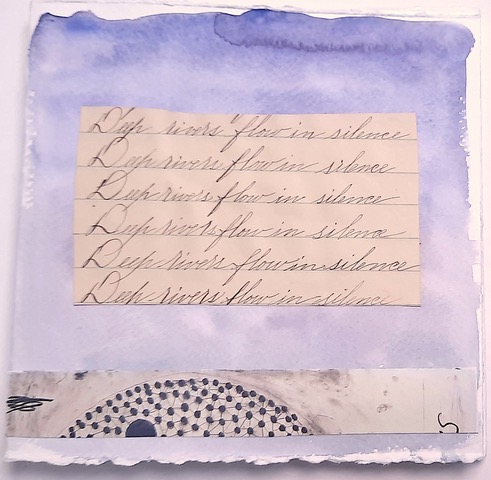 Deep rivers flow in silence
Deep rivers flow in silence
Deep rivers flow in silence
Deep rivers flow in silence
Deep rivers flow in silence
Deep rivers flow in silence